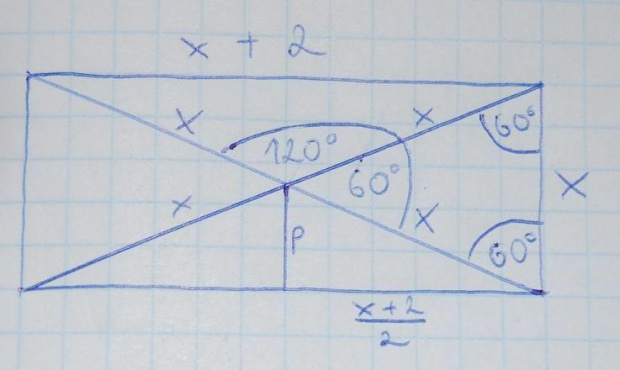 x + 2
x
x
60°
120°
60°
x
x
x
60°
p
x+2
2